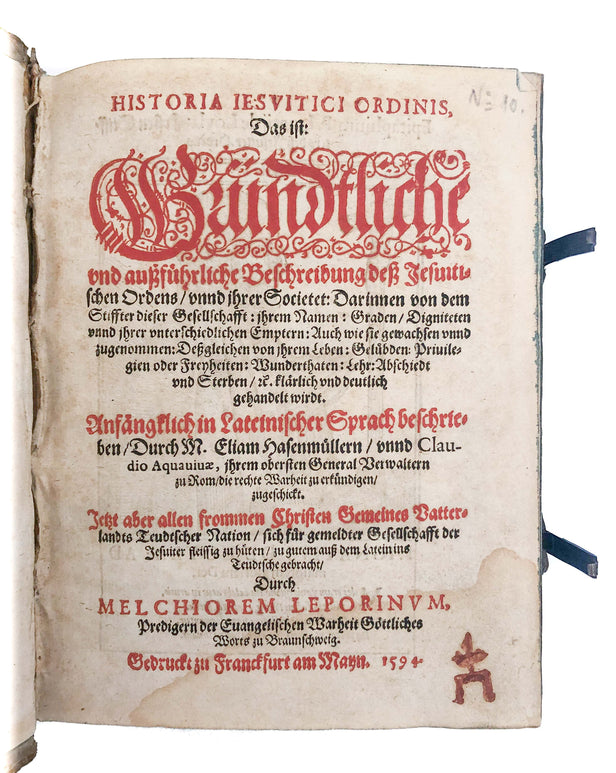 No 10.
HISTORIA IESVITICI ORDINIS,
Das ist:
Gründtliche
vnd außführliche Beschreibung deß Jesuiti-
schen Ordens / vnnd jhrer Societet: Darinnen von dem
Stiffter dieser Gesellschafft: jhrem Namen: Graden / Digniteten
vnnd jhrer vnterschiedlichen Emptern: Auch wie sie gewachsen vnnd
zugenommen: Deßgleichen von jhrem Leben: Gelübden: Priuile-
gien oder Freyheiten: Wunderthaten: Lehr: Abschiedt
vnd Sterben / ꝛc. klärlich vnd deutlich
gehandelt wirdt.
Anfängklich in Lateinischer Sprach beschrie-
ben / Durch M. Eliam Hasenmüllern / vnnd Clau-
dio Aquauiuæ, jhrem obersten General Verwaltern
zu Rom / die rechte Warheit zu erkündigen /
zugeschickt.
Jetzt aber allen frommen Christen Gemeines Vatter-
landts Teudtscher Nation / sich für gemeldter Gesellschafft der
Jesuiter fleissig zu hüten / zu gutem auß dem Latein ins
Teudtsche gebracht /
Durch
MELCHIOREM LEPORINVM,
Predigern der Euangelischen Warheit Göttliches
Worts zu Braunschweig.
Gedruckt zu Franckfurt am Mayn. 1594.